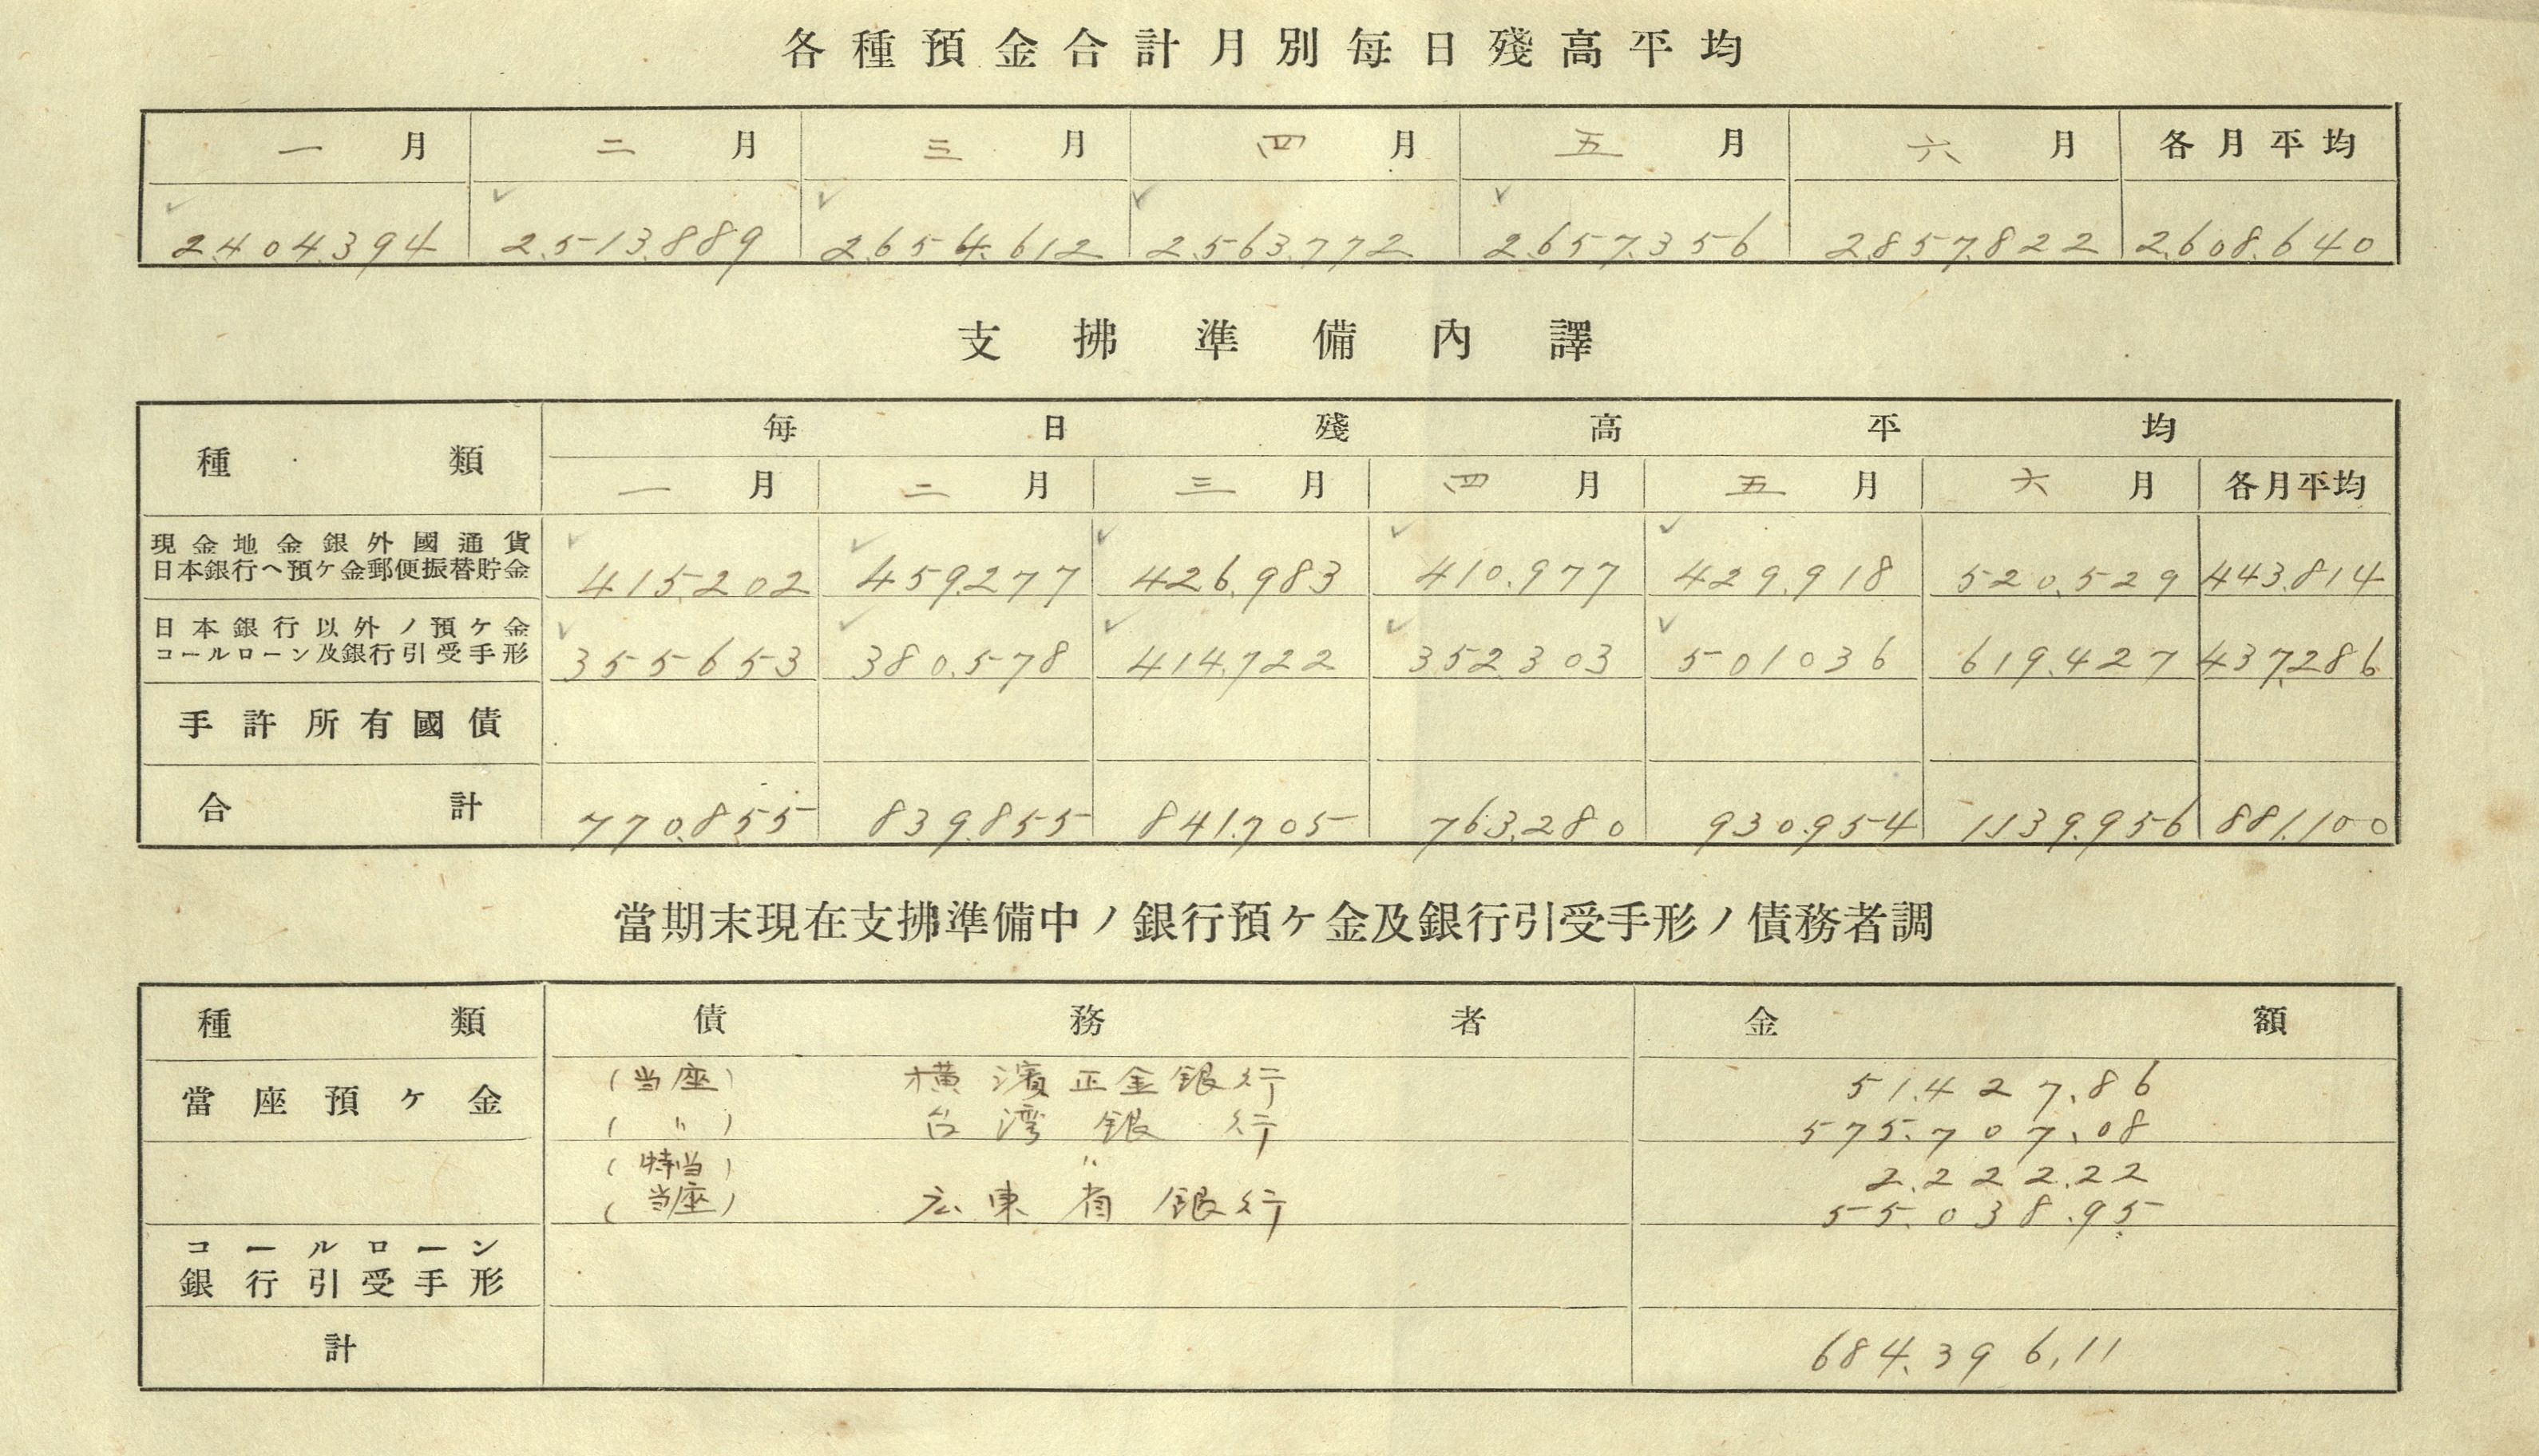 各種預金合計月別每日殘高平均
一月 二月 三月 四月 五月 六月 各月平均
2,404,394 2,513,889 2,654,612 2,563,772 2,657,356 2,857,822 2,608,640
支拂準備內譯
種類 每日殘高平均
一月 二月 三月 四月 五月 六月 各月平均
現金地金銀外國通貨
日本銀行ヘ預ケ金郵便振替貯金 415,202 459,277 426,983 410,977 429,918 520,529 443,814
日本銀行以外ノ預ケ金
コールローン及銀行引受手形 355653 380,578 414,722 352,303 501036 619,427 437,286
手許所有國債
合計 770,855 839,855 841,705 763,280 930,954 1,139,956 881,100
當期末現在支拂準備中ノ銀行預ケ金及銀行引受手形ノ債務者調
種類 債務者 金額
當座預ケ金 (当座) 横濱正金銀行 51,427.86
(〃) 台湾銀行 575,707.08
(特当) 〃 2,222.22
(当座) 広東省銀行 55,038.95
コールローン
銀行引受手形
計 684,396.11